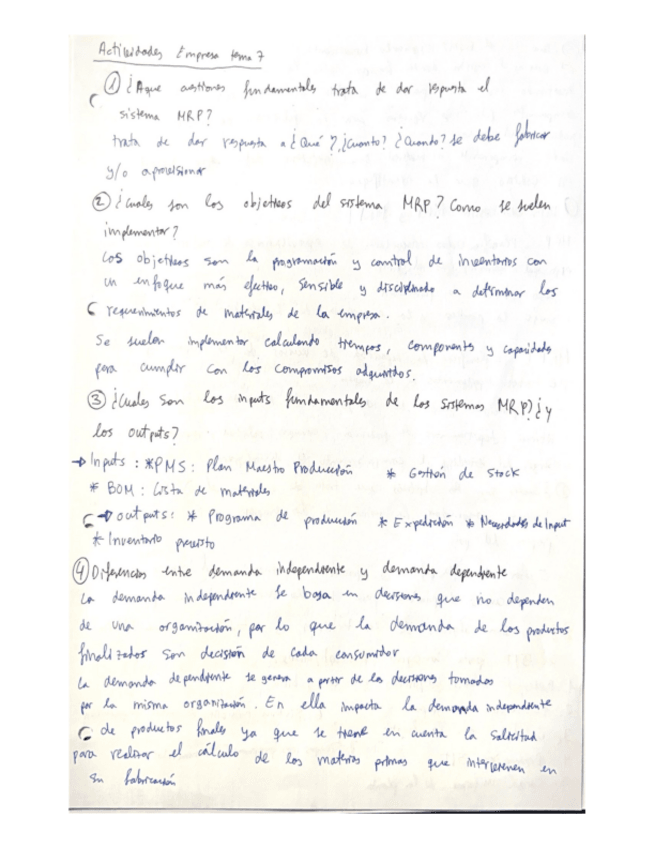 Actividades Empresa tema 7
① ¿A que cuestiones fundamentales trata de dar respuesta el
sistema MRP?
trata de dar respuesta a ¿Qué?, ¿cuanto? ¿cuando? se debe fabricar
y/o aprovisionar
② ¿Cuales son los objetivos del sistema MRP? Como se suelen
implementar?
Los objetivos son la programación y control de inventarios con
un enfoque más efectivo, sensible y disciplinado a determinar los
requerimientos de materiales de la empresa.
Se suelen implementar calculando tiempos, componentes y capacidades
para cumplir con los compromisos adquiridos.
③ ¿Cuales son los inputs fundamentales de los sistemas MRP? ¿y
los outputs?
→ Inputs : * PMS : Plan Maestro Producción * Gestión de Stock
* BOM : Lista de materiales
→ outputs : * Programa de producción * Expedición * Necesidades de Input
* Inventario previsto
④ Diferencias entre demanda independiente y demanda dependiente
La demanda independiente se basa en decisiones que no dependen
de una organización, por lo que la demanda de los productos
finalizados son decisión de cada consumidor
La demanda dependiente se genera a partir de las decisiones tomadas
por la misma organización. En ella impacta la demanda independiente
de productos finales ya que se tiene en cuenta la solicitud
para realizar el cálculo de las materias primas que intervienen en
su fabricación